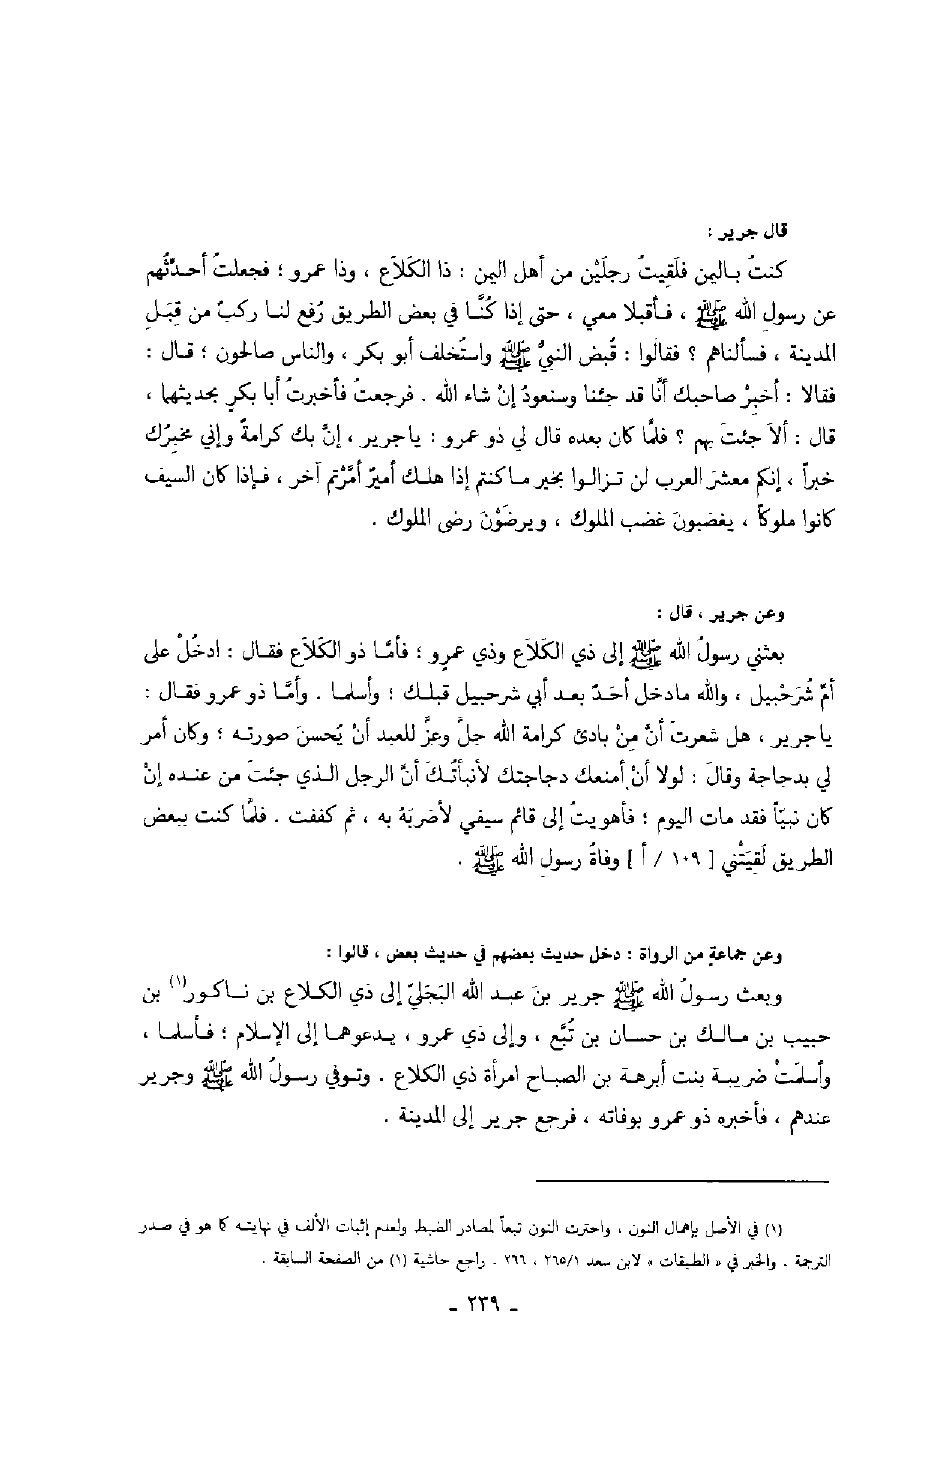 قال جرير :
كنتُ بـاليمن فلَقِيتُ رجلَيْن من أهل اليمن : ذا الكَلاَع ، وذا عمرو ؛ فجعلتُ أحـدِّثُهم
عن رسولِ الله ﷺ ، فـأقبلا معي ، حتى إذا كُنَّـا في بعض الطريق رُفع لنـا ركبٌ من قِبَـلِ
المدينة ، فسألناهم ؟ فقالوا : قُبض النبيُّ ﷺ واستُخلف أبو بكر ، والناس صالحون ؛ قـال :
فقالا : أخبِرْ صاحبك أنَّا قد جئنا وسنعودُ إنْ شاء الله . فرجعتُ فأخبرتُ أبا بكرٍ بحديثهما ،
قال : ألاَ جئتَ بهم ؟ فلمَّا كان بعده قال لي ذو عمرو : ياجرير ، إنَّ بك كرامةً وإني مخبِرُك
خبراً ، إنكم معشرَ العرب لن تـزالـوا بخير مـاكنتم إذا هلـك أميرٌ أمَّرْتم آخر ، فـإذا كان السيف
كانوا ملوكاً ، يغضبونَ غضب الملوك ، ويرضَوْنَ رضى الملوك .
وعن جرير ، قال :
بعثني رسولُ الله ﷺ إلى ذي الكَلاَع وذي عمرٍو ؛ فأمَّـا ذو الكَلاَع فقـال : ادخُلْ على
أمِّ شُرَحْبيل ، والله مادخل أحَـدٌ بعـد أبي شرحبيل قبلـك ؛ وأسلمـا . وأمَّـا ذو عمرو فقـال :
ياجرير ، هل شعرتَ أنَّ مِنْ بادئ كرامة الله جلَّ وعزَّ للعبد أنْ يُحسنَ صورتـه ؛ وكان أمر
لي بدجاجة وقالَ : لولا أنْ أمنعك دجاجتك لأنبأتُـكَ أنَّ الرجل الـذي جئتَ من عنـده إنْ
كان نبيّاً فقد مات اليوم ؛ فأهويتُ إلى قائم سيفي لأضربَهُ به ، ثم كففت . فلمَّا كنت ببعض
الطريق لَقِيَتْني [ ١٠٩ / أ ] وفاةُ رسولِ الله ﷺ .
وعن جماعةٍ من الرواة : دخل حديث بعضهم في حديث بعض ، قالوا :
وبعث رسولُ الله ﷺ جرير بنَ عبـد الله البَجَليّ إلى ذي الكـلاع بن نـاكور(١) بن
حبيب بن مـالـك بن حسـان بن تُبَّع ، وإلى ذي عمرو ، يـدعوهمـا إلى الإسلام ؛ فـأسلما ،
وأسلمَتْ ضريبة بنت أبرهـة بن الصباح امرأة ذي الكلاع . وتـوفي رسولُ الله ﷺ وجرير
عندهم ، فأخبره ذو عمرو بوفاته ، فرجع جرير إلى المدينة .
(١) في الأصل بإهمال النون ، واخترت النون تبعاً لمصادر الضبط ولعدم إثبات الألف في نهايته كما هو في صدر
الترجمة . والخبر في « الطبقات » لابن سعد ٢٦٥/١ ، ٢٦٦ . راجع حاشية (١) من الصفحة السابقة .
- ٢٣٩ -